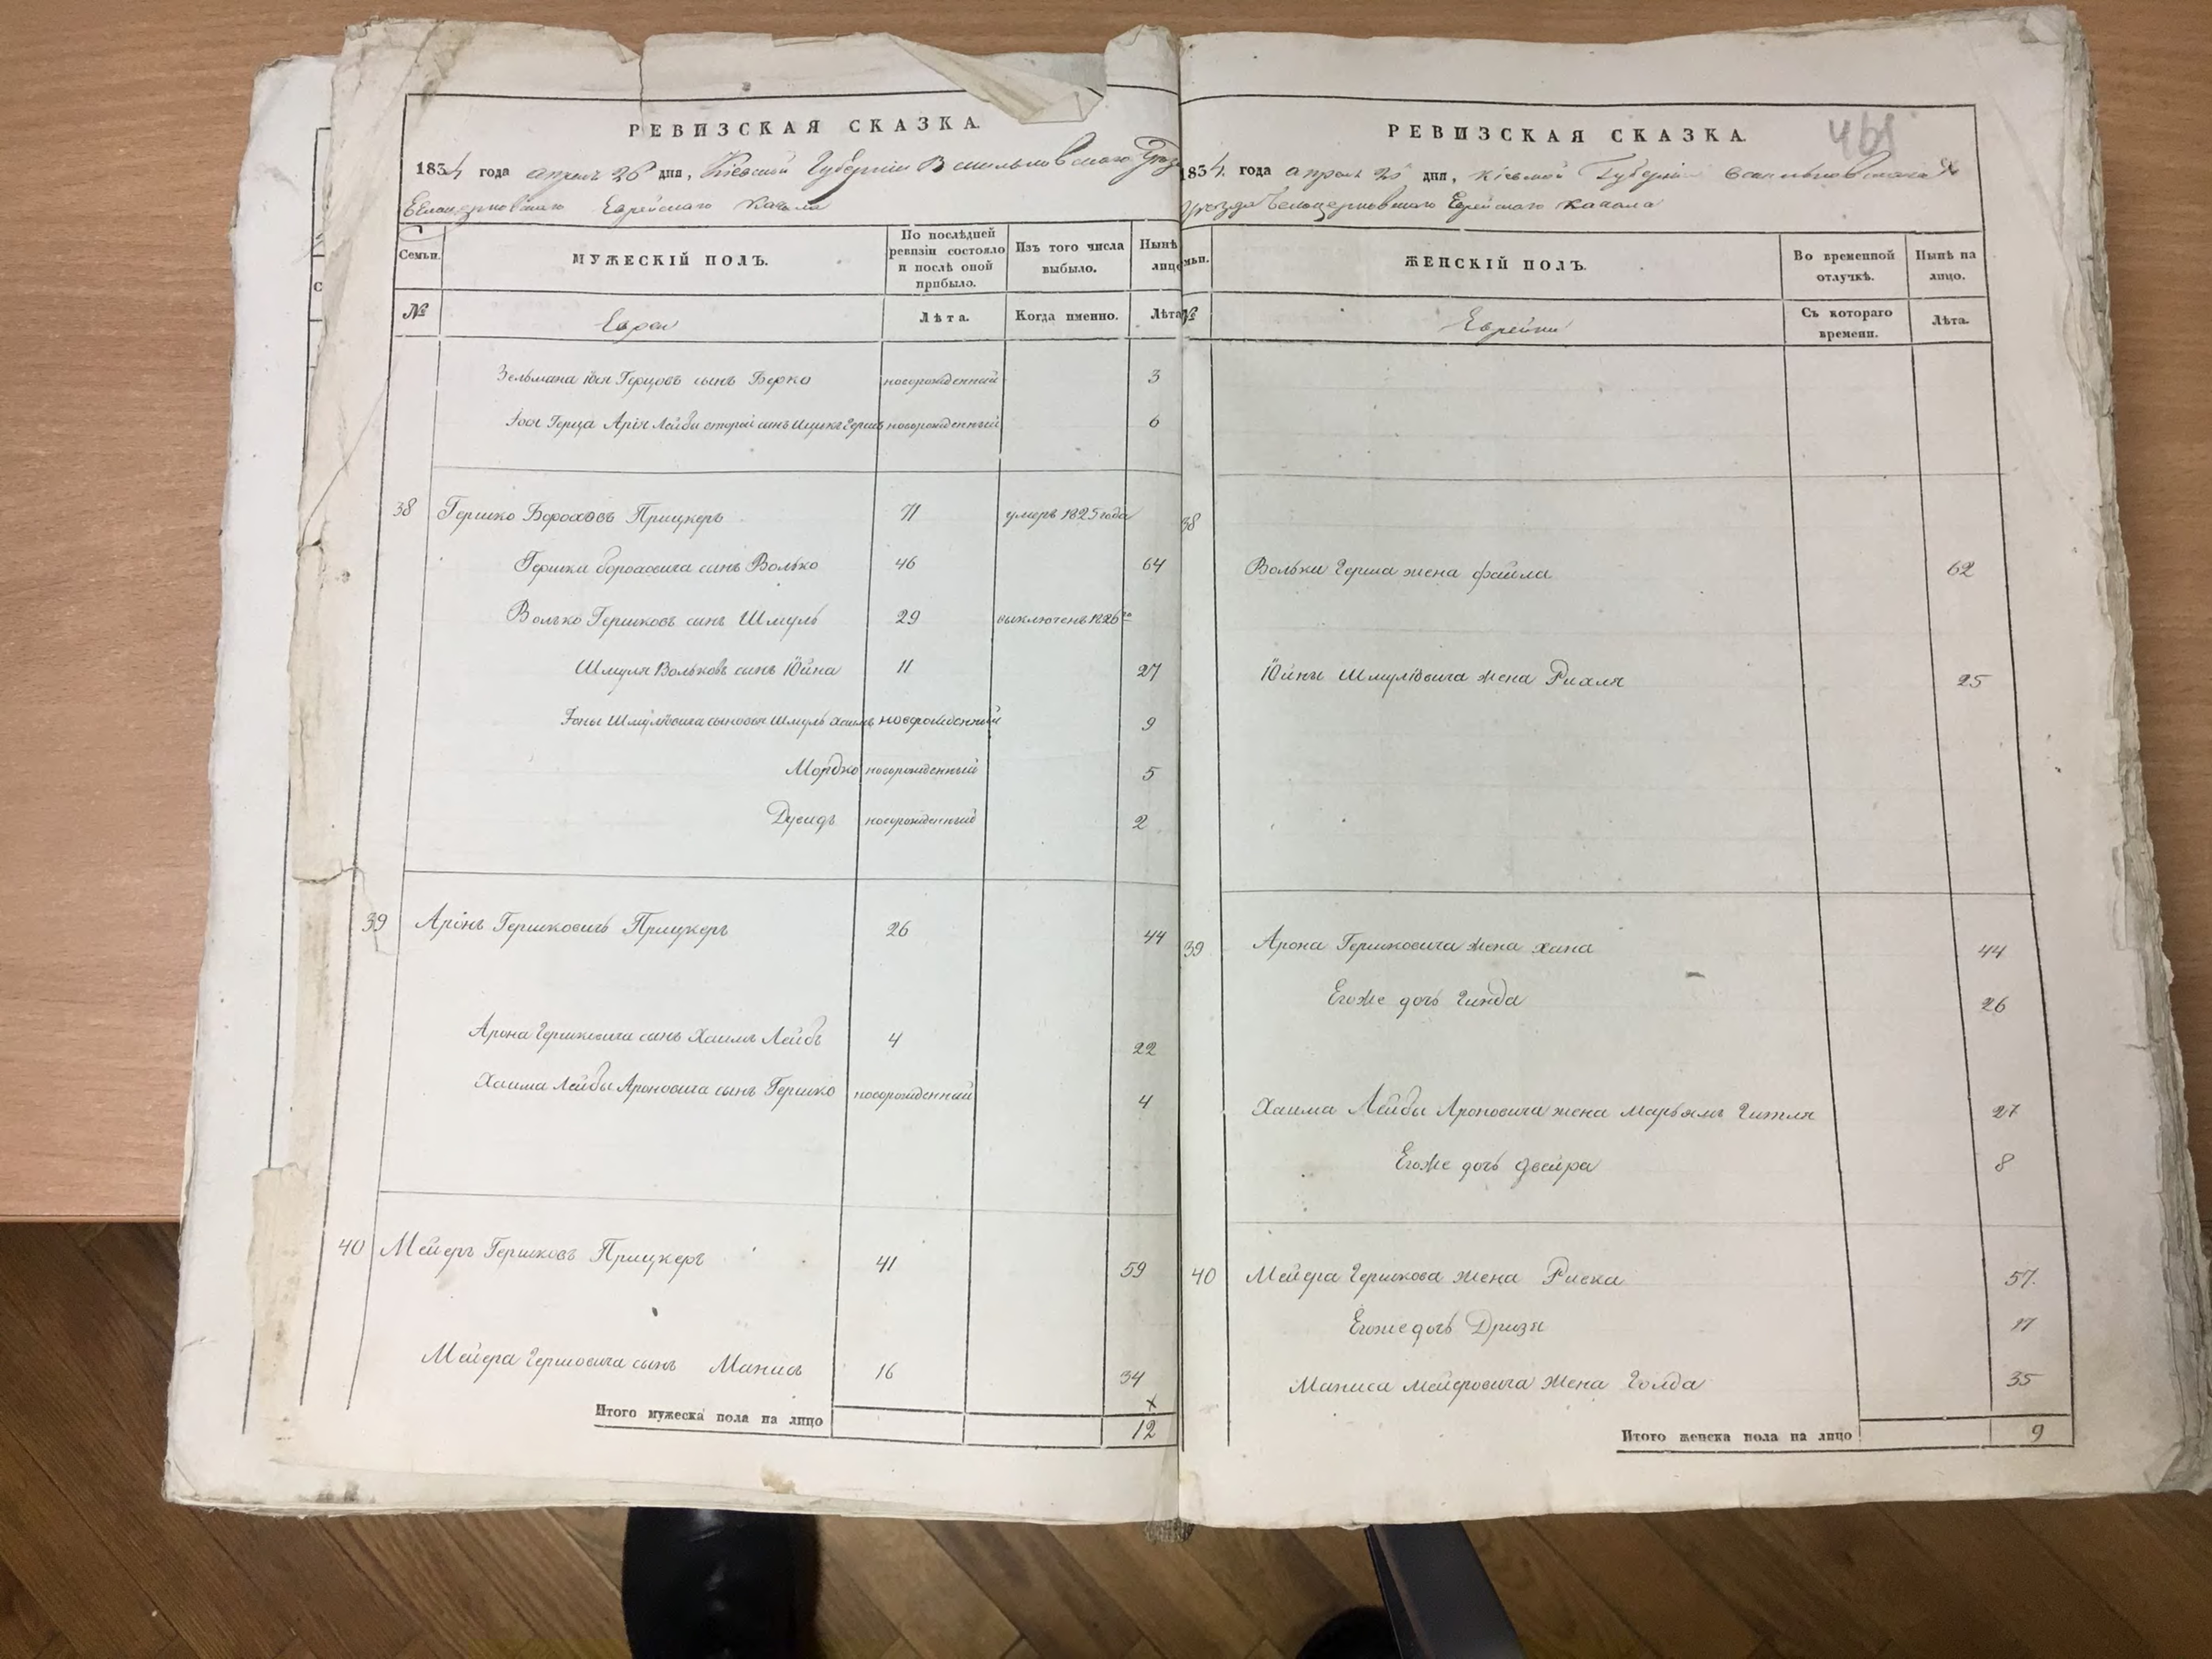 РЕВИЗСКАЯ СКАЗКА.
1834 года апреля 26 дня, Кіевской Губерніи Васильковского Уезда
Белоцерковского Еврейского Кагала
Семьи.
МУЖЕСКІЙ ПОЛЪ.
По послѣдней ревизіи состояло и послѣ оной прибыло.
Изъ того числа выбыло.
Нынѣ лицо
№
Евреи
Лѣта.
Когда именно.
Лѣта
Зельмана Іося Герцовъ сынъ Берко новорожденный 3
Іося Герца Арія Лейбы вторый сынъ Ицикъ Гершъ новорожденный 6
38 Гершко Бороховъ Прицкеръ 71 умеръ 1825 года
Гершки Бороховича сынъ Волько 46 64
Волько Гершковъ сынъ Шмуль 29 выключенъ 1826 го
Шмуля Вольковъ сынъ Іойна 11 27
Іоны Шмулёвича сыновья Шмуль Хаимъ новорожденный 9
Мордко новорожденный 5
Дувидъ новорожденный 2
39 Арінъ Гершковичъ Прицкеръ 26 44
Арона Гершковича сынъ Хаимъ Лейбъ 4 22
Хаима Лейбы Ароновича сынъ Гершко новорожденный 4
40 Мейеръ Гершковъ Прицкеръ 41 59
Мейера Гершовича сынъ Манись 16 34
Итого мужеска пола на лицо 12
РЕВИЗСКАЯ СКАЗКА.
461
1834. года апреля 26 дня, Кіевской Губерніи Васильковского
Уезда Белоцерковского Еврейского Кагала
мьи.
ЖЕНСКІЙ ПОЛЪ.
Во временной отлучкѣ.
Нынѣ на лицо.
№
Еврейки
Съ котораго времени.
Лѣта.
38
Вольки Герша жена Файла 62
Іойны Шмулёвича жена Рихля 25
39 Арона Гершковича жена Хана 44
Егоже дочь Гинда 26
Хаима Лейбы Ароновича жена Марьямъ Гитля 27
Егоже дочь Двейра 8
40 Мейера Гершкова жена Риска 57.
Егоже дочь Дризя 17
Маниса Мейеровича жена Голда 35
Итого женска пола на лицо 9